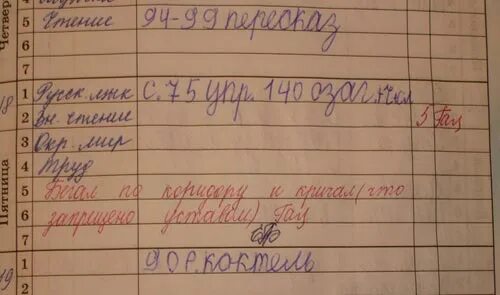 Четвер
5 Чтение 94-99 пересказ
6
7
18
1 Русск. язык с. 75 упр. 140 озаг.
2 Вн. чтение 5 Гац
3 Окр. мир
4 Труд
Пятница
5 Бегал по коридору и кричал (что
6 запрещено уставом) Гац
7
19
1 90 р. коктель
2